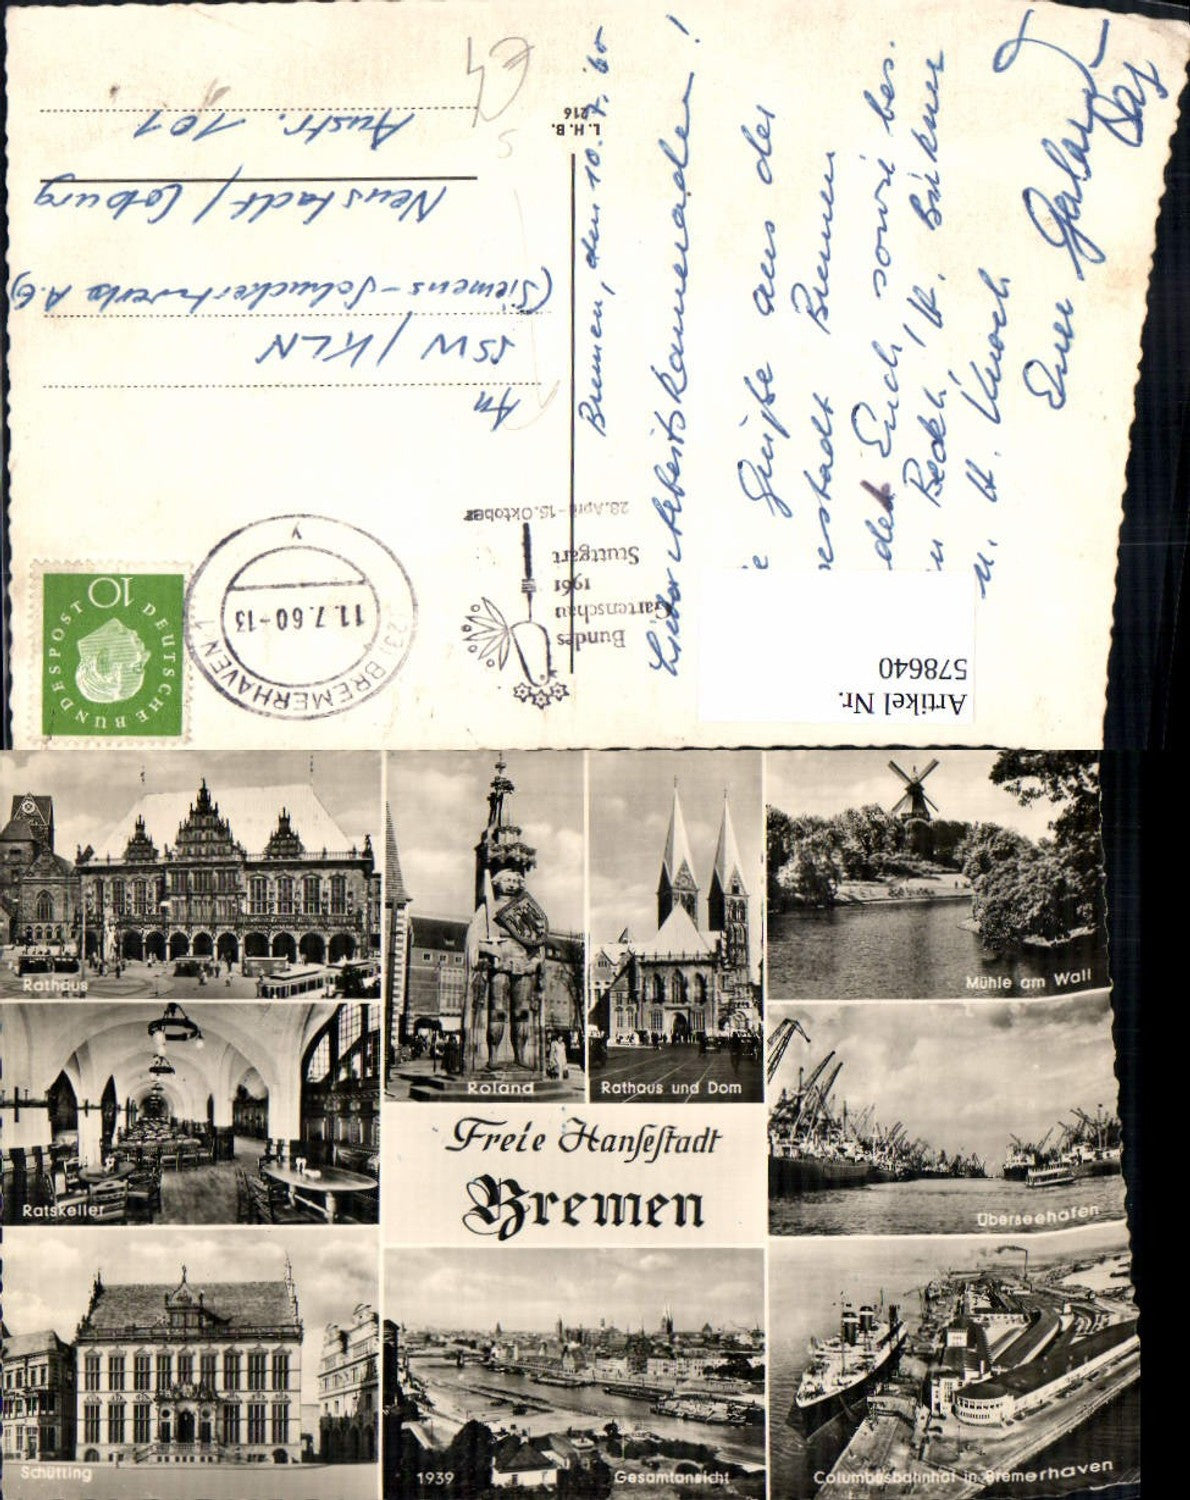 Bremen, den 10.7.60
Liebe Arbeitskameraden!
Grüße aus der
Bremen
Euch, sowie bes.
H. Birkner
u. H. Knoch
Euer
L.H.B.
216
An
SSW/KLN
(Siemens-Schuckertwerke A.G)
Neustadt/Coburg
Austr. 101
Bundes
Gartenschau
1961
Stuttgart
28.April-15.Oktober
BREMERHAVEN 1
11.7.60-13
DEUTSCHE BUNDESPOST
10
Artikel Nr.
578640
Rathaus
Roland
Rathaus und Dom
Mühle am Wall
Ratskeller
Freie Hansestadt
Bremen
Überseehafen
Schütting
1939
Gesamtansicht
Columbusbahnhof in Bremerhaven